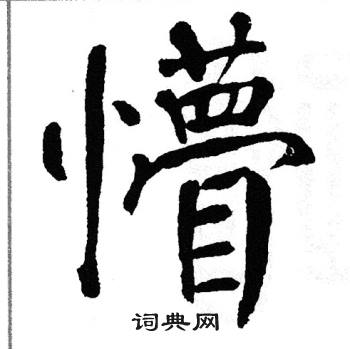 懵
词典网